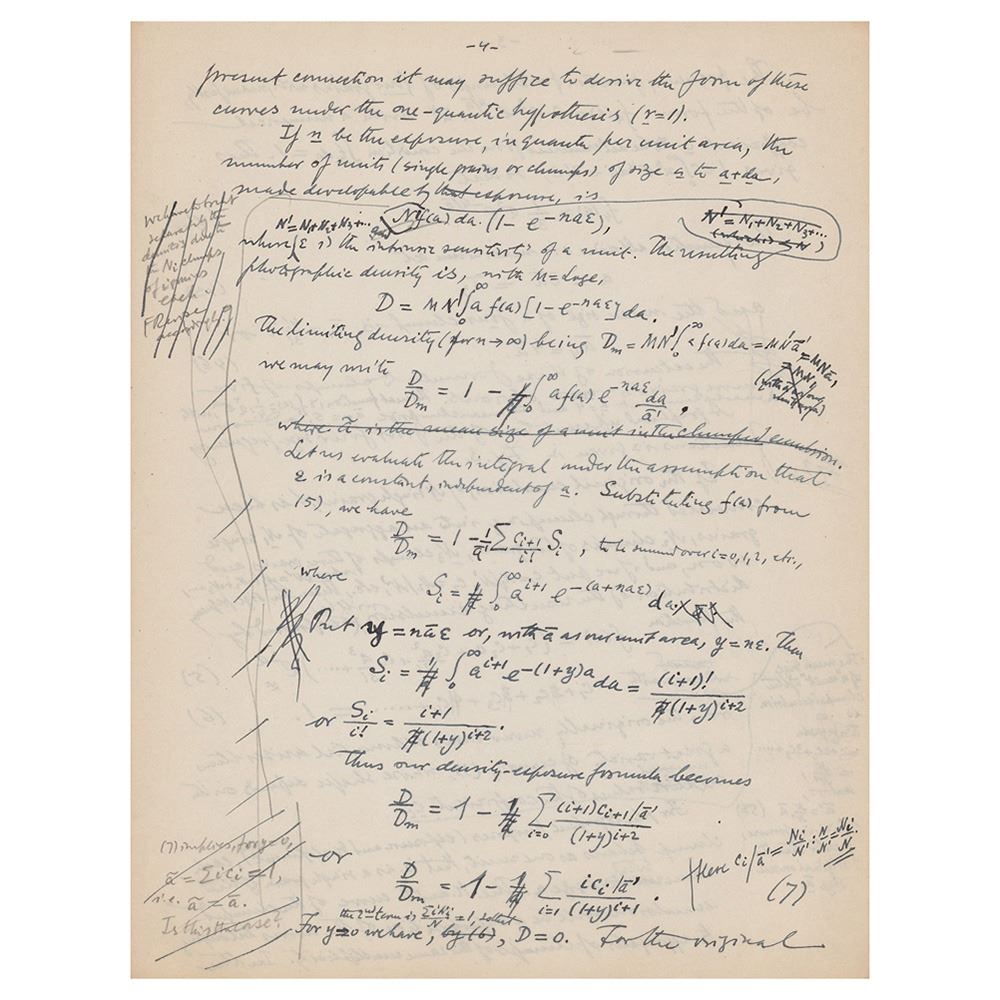 -4-
present connection it may suffice to derive the form of these
curves under the one-quantic hypothesis (r=1).
If n be the exposure, in quanta per unit area, the
number of units (single grains or clumps) of size a to a+da,
made developable by that exposure, is
N' = N₁+N₂+N₃+...
N'f(a) da. (1 - e^-naε),
N' = N₁+N₂+N₃+...
(which is < N)
where ε is the intrinsic sensitivity of a unit. The resulting
photographic density is, with M = log e,
D = MN' ∫₀^∞ a f(a) [1 - e^-naε] da.
The limiting density (for n→∞) being Dm = MN' ∫₀^∞ a f(a) da = MN'ā' = MNā,
= MN,
(with ā as our unit area)
we may write
D/Dm = 1 - ∫₀^∞ a f(a) e^-naε da/ā' .
where ā' is the mean size of a unit in the clumped emulsion.
Let us evaluate the integral under the assumption that
ε is a constant, independent of a. Substituting f(a) from
(5), we have
D/Dm = 1 - 1/ā' Σ Ci+1/i! Si , to be summed over i=0,1,2, etc.,
where
Si = ∫₀^∞ a^i+1 e^-(a+naε) da.
Put y = nāε or, with ā as our unit area, y = nε. Then
Si = ∫₀^∞ a^i+1 e^-(1+y)a da = (i+1)!/(1+y)^i+2
or Si/i! = i+1/(1+y)^i+2 .
Thus our density-exposure formula becomes
D/Dm = 1 - Σ i=0 (i+1)Ci+1/ā'/(1+y)^i+2
or
D/Dm = 1 - Σ i=1 iCi/ā'/(1+y)^i+1 .
Here Ci/ā' = Ni/N' : N/N' = Ni/N.
(7)
the 2nd term is ΣiNi/N = 1, so that
For y→0 we have, by (6), D=0. For the original
We have to treat
separately the
densities due to
Ni clumps
of i grains
each.
(Revise
accordingly)
(7) implies, for y=0,
ā = ΣiCi = 1,
i.e. ā' = ā.
Is this the case?